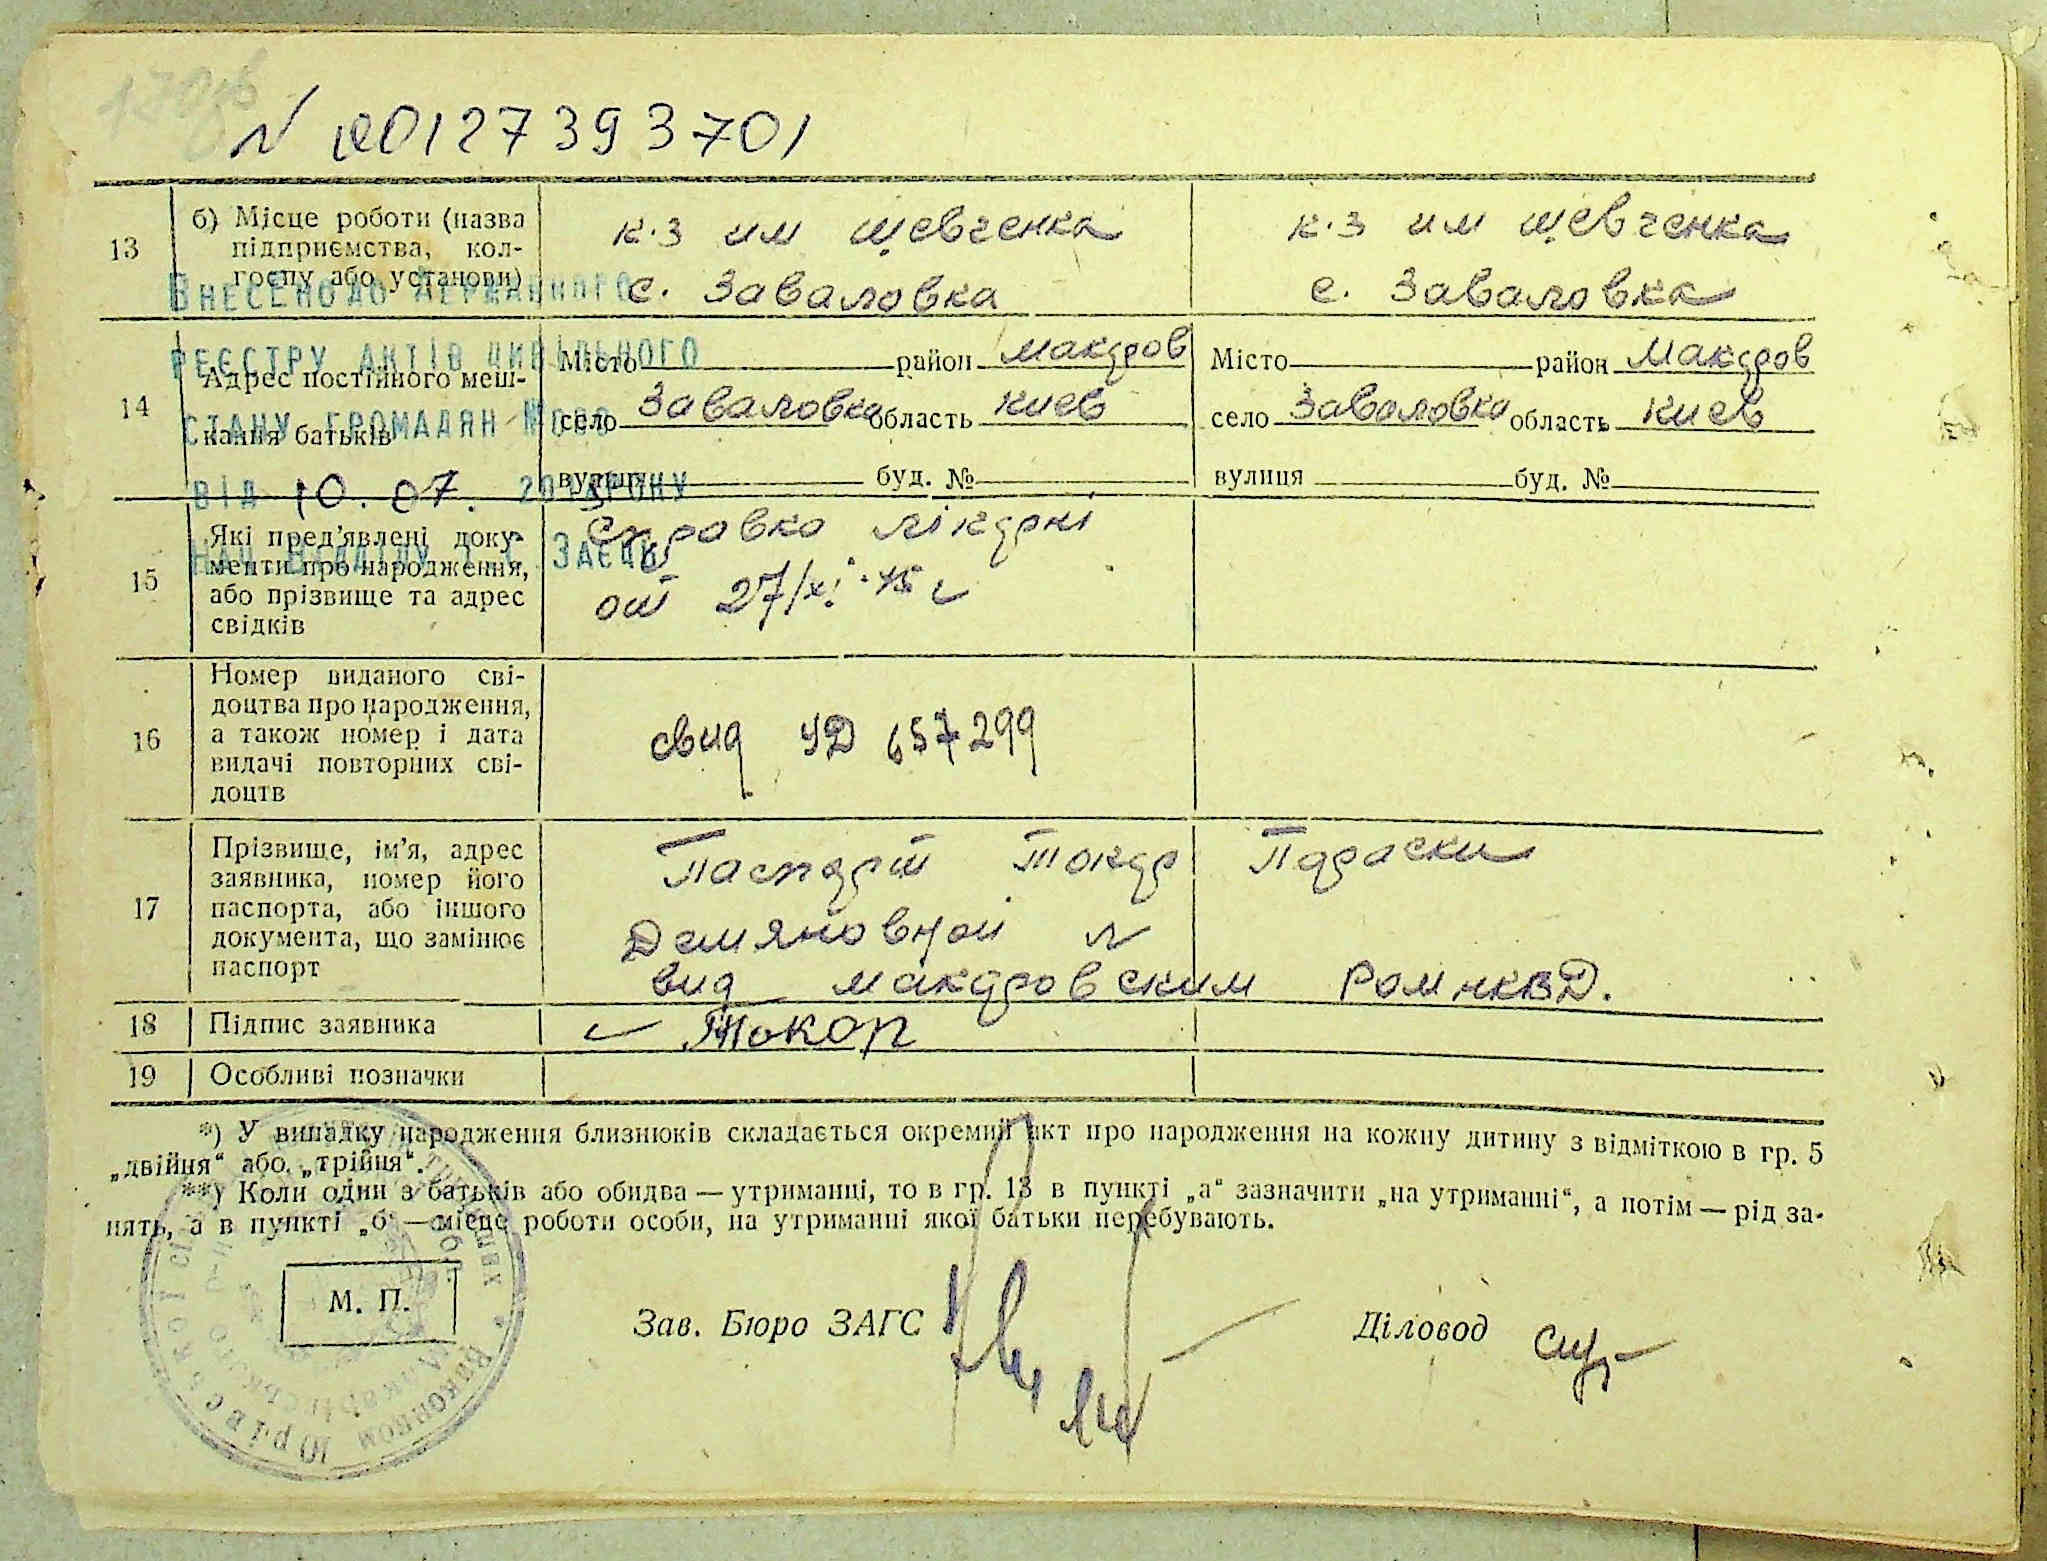 N 00127393701
13 б) Місце роботи (назва підприємства, кол-
госпу або установи)
к.з им Шевченка к.з им Шевченка
с. Заваловка с. Заваловка
Внесено до Державного
реєстру актів цивільного
стану громадян
від 10.07. 20 року
Нач. відділу Заєць
14 Адрес постійного меш-
кання батьків
Місто район Макаров Місто район Макаров
село Заваловка область Киев село Заваловка область Киев
вулиця буд. № вулиця буд. №
15 Які пред'явлені доку-
менти про народження,
або прізвище та адрес
свідків
Справка лікарні
от 27/XI-45 г
16 Номер виданого сві-
доцтва про народження,
а також номер і дата
видачі повторних сві-
доцтв
свид УД 657299
17 Прізвище, ім'я, адрес
заявника, номер його
паспорта, або іншого
документа, що замінює
паспорт
Паспорт Токар Параски
Демяновной
вид Макаровским РОМ НКВД.
18 Підпис заявника Токар
19 Особливі позначки
*) У випадку народження близнюків складається окремий акт про народження на кожну дитину з відміткою в гр. 5
„двійня“ або „трійня“.
**) Коли один з батьків або обидва — утриманці, то в гр. 13 в пункті „а“ зазначити „на утриманні“, а потім — рід за-
нять, а в пункті „б“ — місце роботи особи, на утриманні якої батьки перебувають.
М. П.
Зав. Бюро ЗАГС Діловод